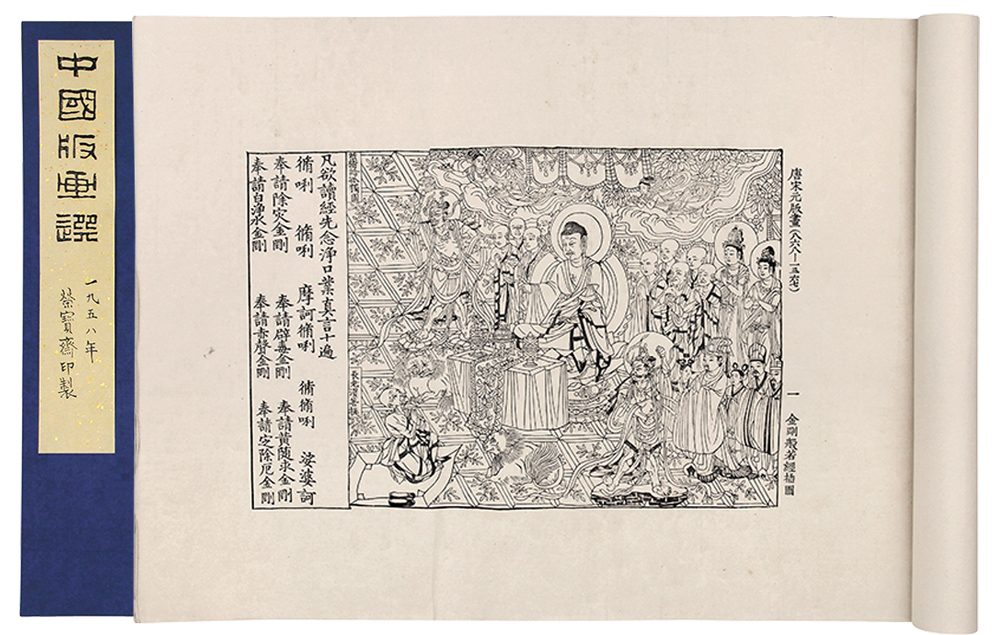 中國版画選
一九五八年
榮寶齋印製
唐宋元版畫(八六八—一三六七)
一 金剛般若經插圖
凡欲讀經先念淨口業真言十遍
脩唎 脩唎 摩訶脩唎 脩脩唎 娑婆訶
奉請除灾金剛 奉請辟毒金剛 奉請黃隨求金剛
奉請白淨水金剛 奉請赤聲金剛 奉請定除厄金剛
長老須菩提